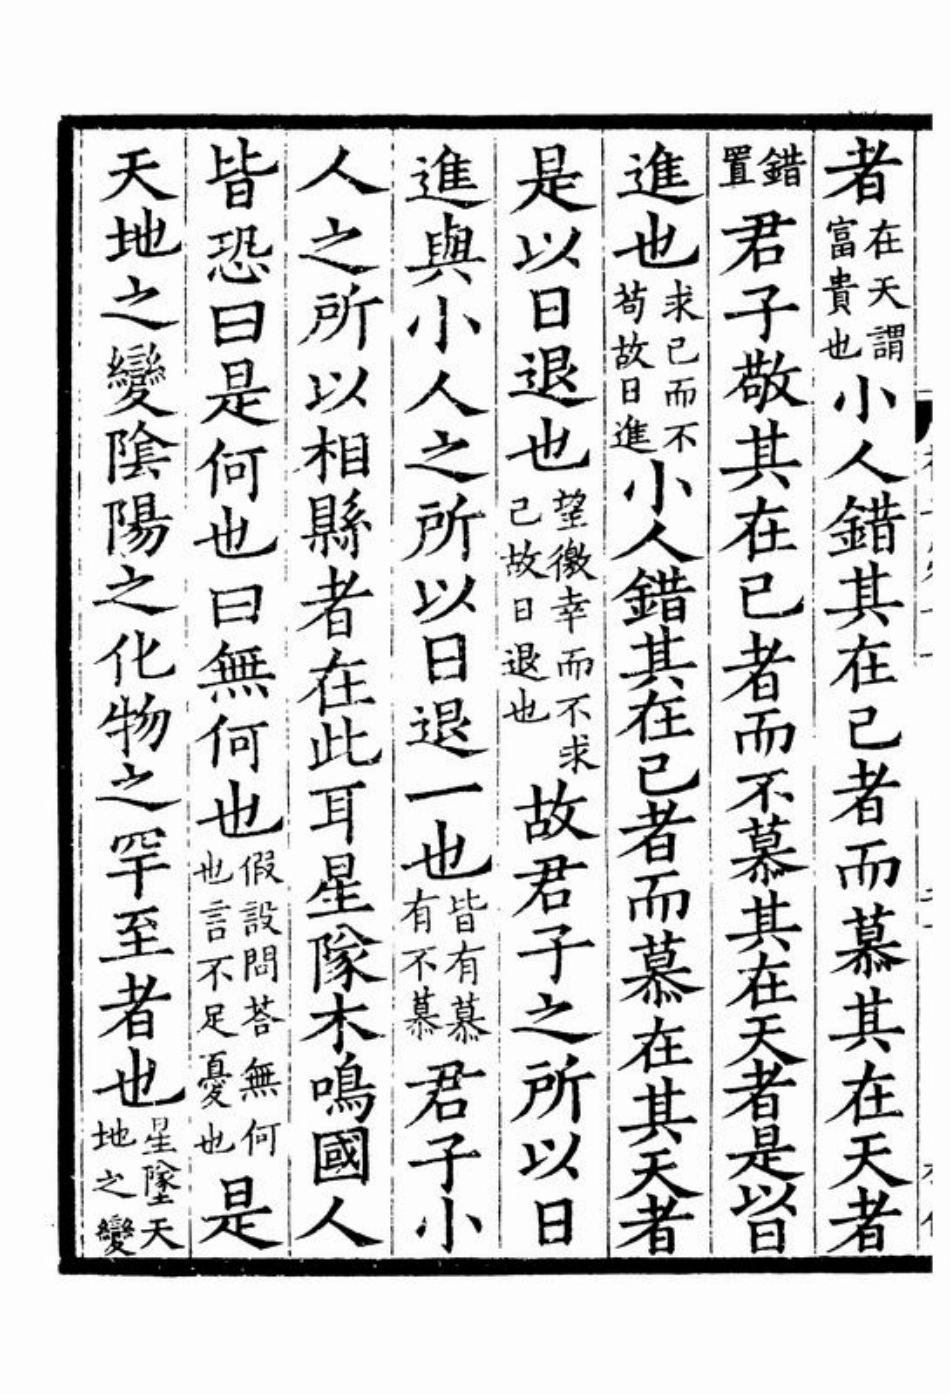 者在天謂富貴也小人錯其在己者而慕其在天者
錯置君子敬其在己者而不慕其在天者是以日
進也求己而不苟故日進小人錯其在己者而慕在其天者
是以日退也望徼幸而不求己故日退也故君子之所以日
進與小人之所以日退一也皆有慕有不慕君子小
人之所以相縣者在此耳星隊木鳴國人
皆恐曰是何也曰無何也假設問荅無何也言不足憂也是
天地之變陰陽之化物之罕至者也星墜天地之變